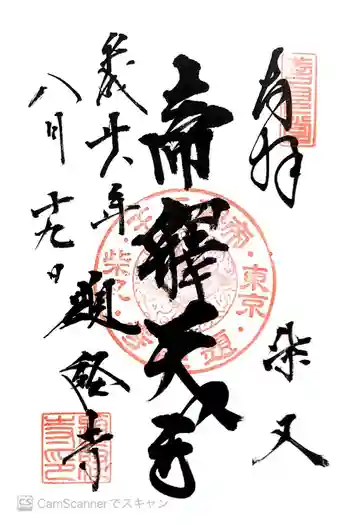 奉拝
柴又
帝釈天王
平成廿六年
八月十九日
題経寺
東京
柴又
CamScannerでスキャン